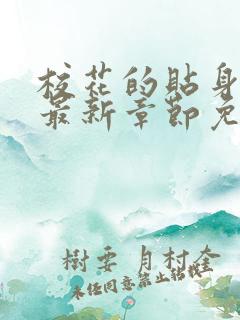 校花的贴身
最新章节免
树要月村奎
未经同意禁止转载